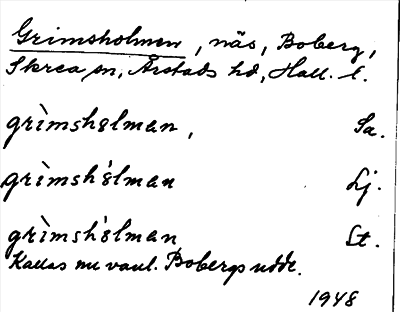 Grimsholmen, näs, Boberg,
Skrea sn, Årstads hd, Hall. l.
grìmshɷlman, Sa.
grìmshɷ́lman Lj.
grìmshɷ́lman St.
Kallas nu vanl. Bobergs udde.
1948